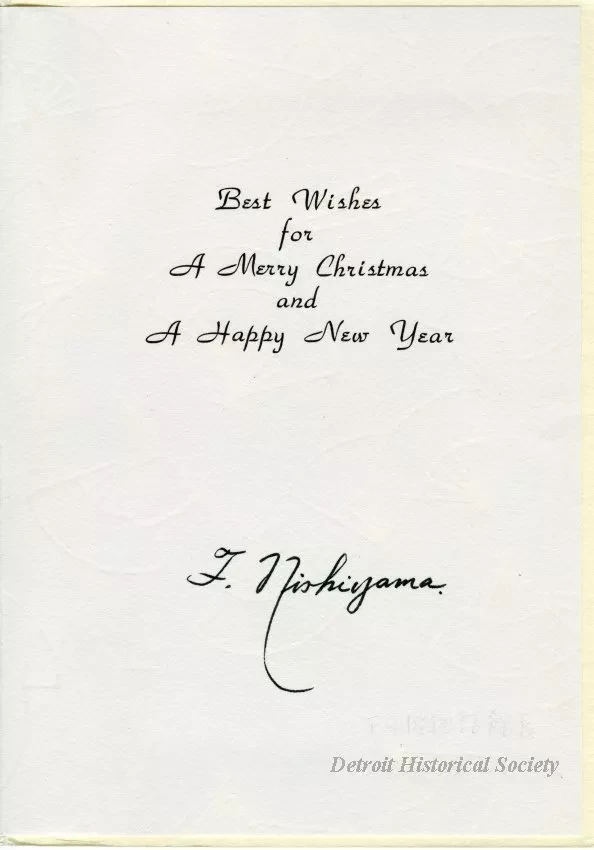 Best Wishes
for
A Merry Christmas
and
A Happy New Year
F. Nishiyama.
Detroit Historical Society